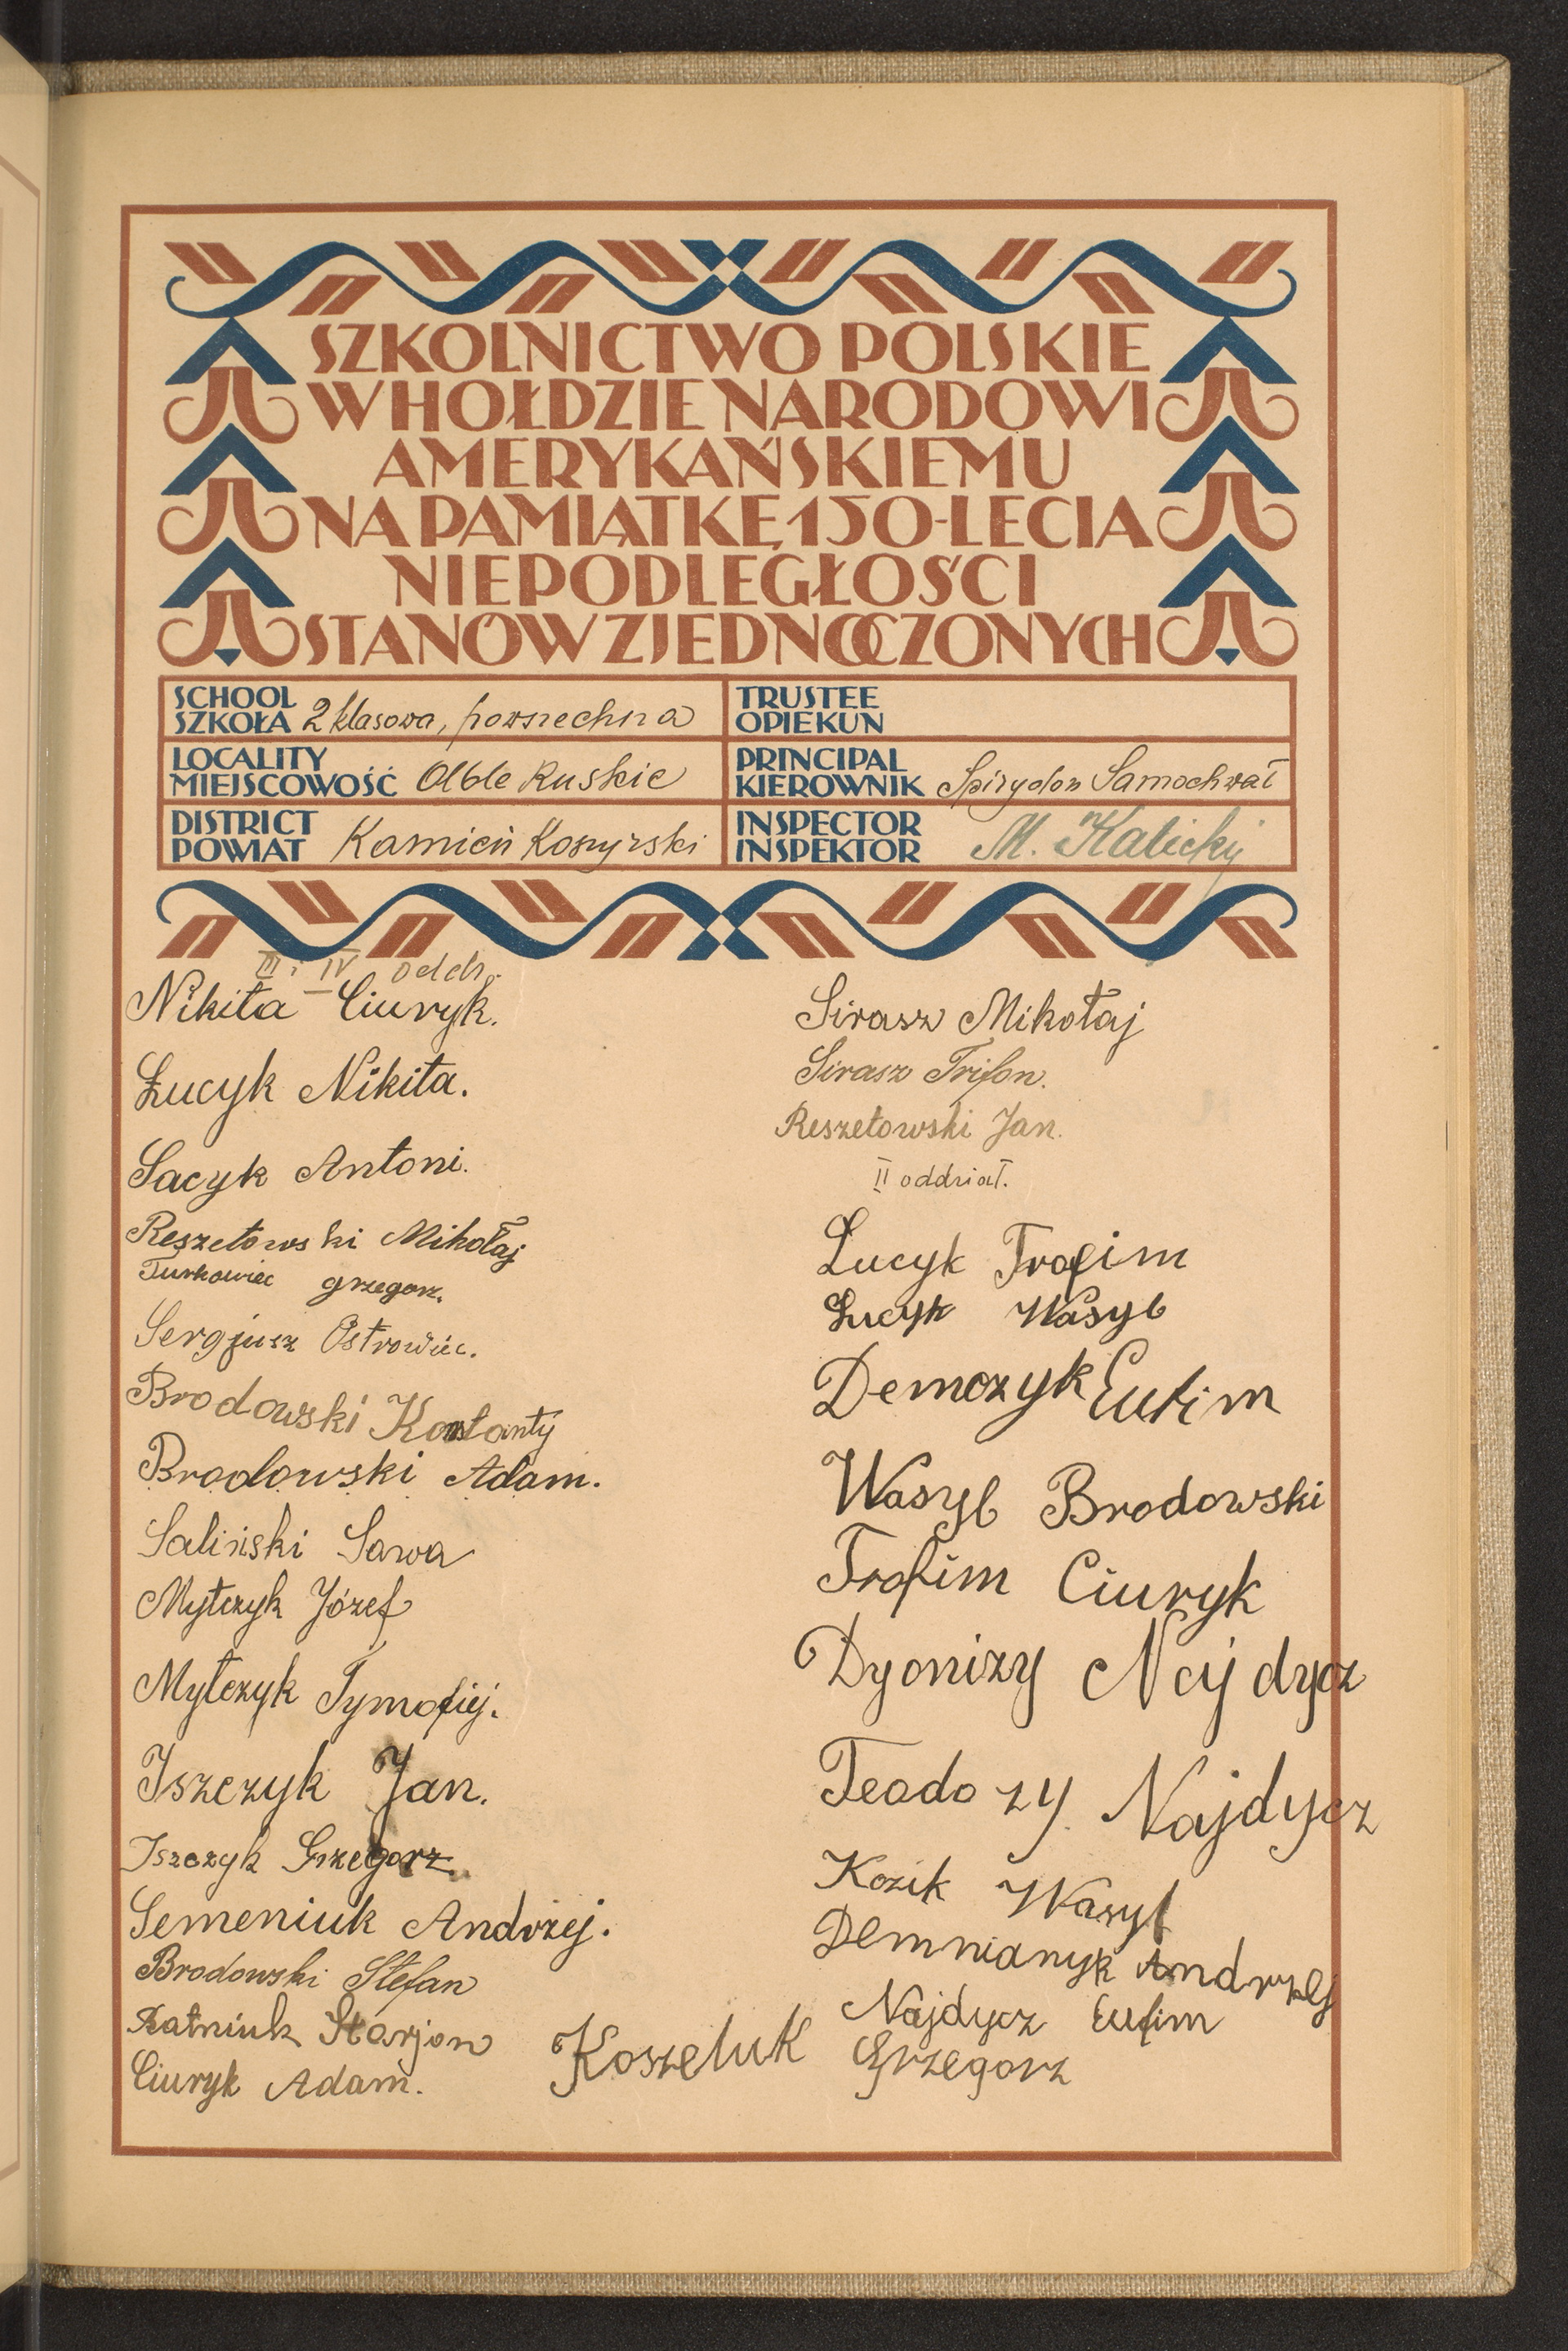 SZKOLNICTWO POLSKIE
W HOŁDZIE NARODOWI
AMERYKAŃSKIEMU
NA PAMIĄTKĘ 150-LECIA
NIEPODLEGŁOŚCI
STANÓW ZJEDNOCZONYCH
SCHOOL
SZKOŁA 2 klasowa, powszechna
TRUSTEE
OPIEKUN
LOCALITY
MIEJSCOWOŚĆ Olble Ruskie
PRINCIPAL
KIEROWNIK Spirydon Samochwał
DISTRICT
POWIAT Kamień Koszyrski
INSPECTOR
INSPEKTOR M. Kalicky
III i IV oddz.
Nikita Ciuryk.
Łucyk Nikita.
Sacyk Antoni.
Reszetowski Mikołaj
Turkowiec grzegorz.
Sergjusz Ostrowiec.
Brodowski Kostanty
Brodowski Adam.
Saliński Sawa
Mytczyk Józef
Mytczyk Tymofiej.
Iszczyk Jan.
Iszczyk Grzegorz
Semeniuk Andrzej.
Brodowski Stefan
Ratniuk Iłarjon
Ciuryk Adam.
Sirasz Mikołaj
Sirasz Trifon.
Reszetowski Jan.
II oddział.
Łucyk Trofim
Łucyk Wasyl
Demczyk Eufim
Wasyl Brodowski
Trofim Ciuryk
Dyonizy Najdycz
Teodozy. Najdycz
Kozik Wasyl
Demnianyk Andrzej
Najdycz Eufim
Koszeluk Grzegorz